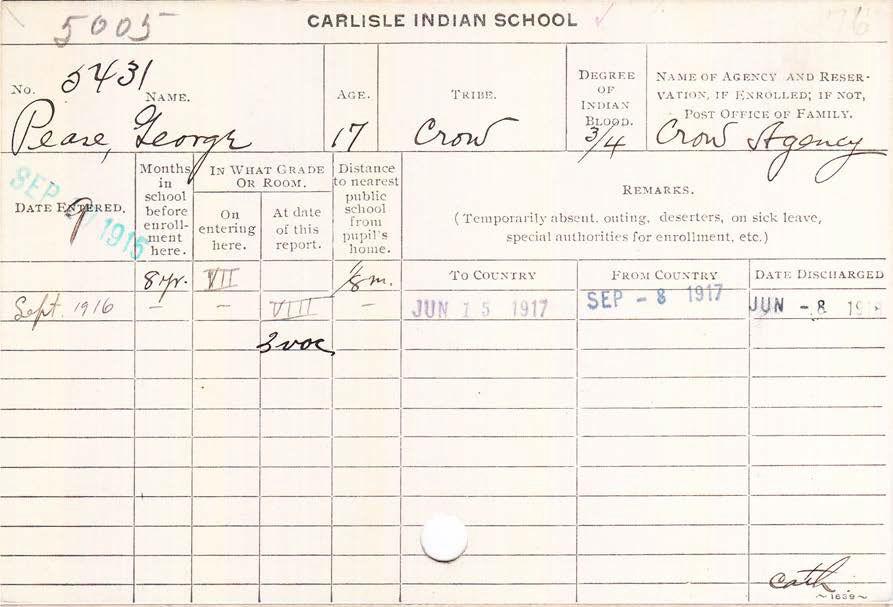 5005
CARLISLE INDIAN SCHOOL
76
No. 5431
NAME.
AGE.
TRIBE.
DEGREE OF INDIAN BLOOD.
NAME OF AGENCY AND RESER-
VATION, IF ENROLLED; IF NOT,
POST OFFICE OF FAMILY.
Pease, George 17 Crow 3/4 Crow Agency
DATE ENTERED.
SEP 1915
9
Months in school before enroll-ment here.
IN WHAT GRADE OR ROOM.
On entering here.
At date of this report.
Distance to nearest public school from pupil's home.
REMARKS.
(Temporarily absent, outing, deserters, on sick leave,
special authorities for enrollment, etc.)
TO COUNTRY FROM COUNTRY DATE DISCHARGED
8 yr. VII 1/8 m.
Sept. 1916 – – VIII – JUN 15 1917 SEP - 8 1917 JUN - 8
3 voc
cath
~1639~